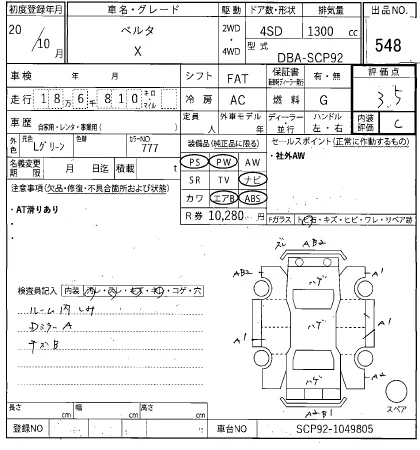 初度登録年月 車名・グレード 駆動 ドア数・形状 排気量 出品NO.
20/10月 ベルタ X 2WD・4WD 4SD 1300 cc 548
型式 DBA-SCP92
車検 年 月 シフト FAT 保証書 有・無 評価点 3.5
走行 18万6千810 キロ マイル 冷房 AC 燃料 G
車歴 自家用・レンタ・事業用( ) 定員 人 外車モデル 年 ディーラー・並行 ハンドル 左・右 内装評価 C
外色 元色 Lグリーン 色替 カラーNO 777
装備品(純正品に限る) セールスポイント(正常に作動するもの)
名義変更期限 月 日迄 積載 t
PS PW AW ・社外AW
注意事項(欠品・修復・不具合箇所および状態)
SR TV ナビ
・AT滑りあり
カワ エアB ABS
R券 10,280 円
Fガラス トビ石・キズ・ヒビ・ワレ・リペア跡
ズレ AB2
AB2 ハゲ A1
検査員記入 内装 汚レ・スレ・キズ・切レ・コゲ・穴
ルーム内しみ
DミラーA
A1 ハゲ A1
A2
ハゲ
A2B1
スペア
長さ cm 幅 cm 高さ cm
登録NO 車台NO SCP92-1049805